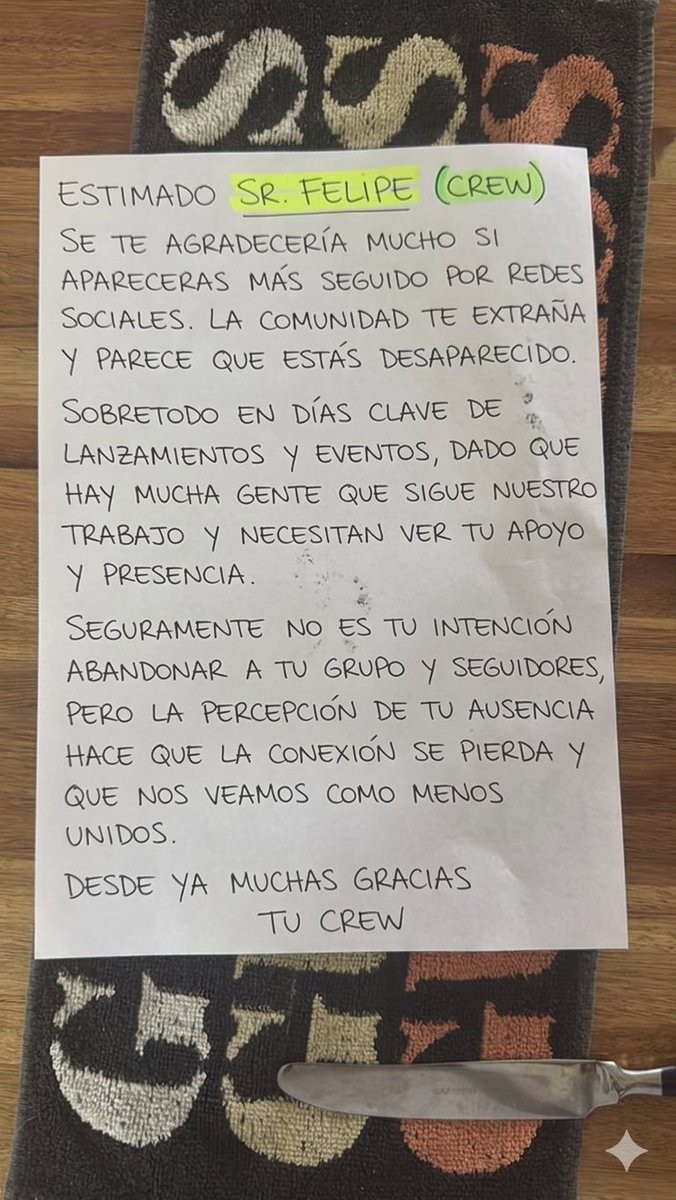 ESTIMADO SR. FELIPE (CREW)
SE TE AGRADECERÍA MUCHO SI
APARECERAS MÁS SEGUIDO POR REDES
SOCIALES. LA COMUNIDAD TE EXTRAÑA
Y PARECE QUE ESTÁS DESAPARECIDO.
SOBRETODO EN DÍAS CLAVE DE
LANZAMIENTOS Y EVENTOS, DADO QUE
HAY MUCHA GENTE QUE SIGUE NUESTRO
TRABAJO Y NECESITAN VER TU APOYO
Y PRESENCIA.
SEGURAMENTE NO ES TU INTENCIÓN
ABANDONAR A TU GRUPO Y SEGUIDORES,
PERO LA PERCEPCIÓN DE TU AUSENCIA
HACE QUE LA CONEXIÓN SE PIERDA Y
QUE NOS VEAMOS COMO MENOS
UNIDOS.
DESDE YA MUCHAS GRACIAS
TU CREW